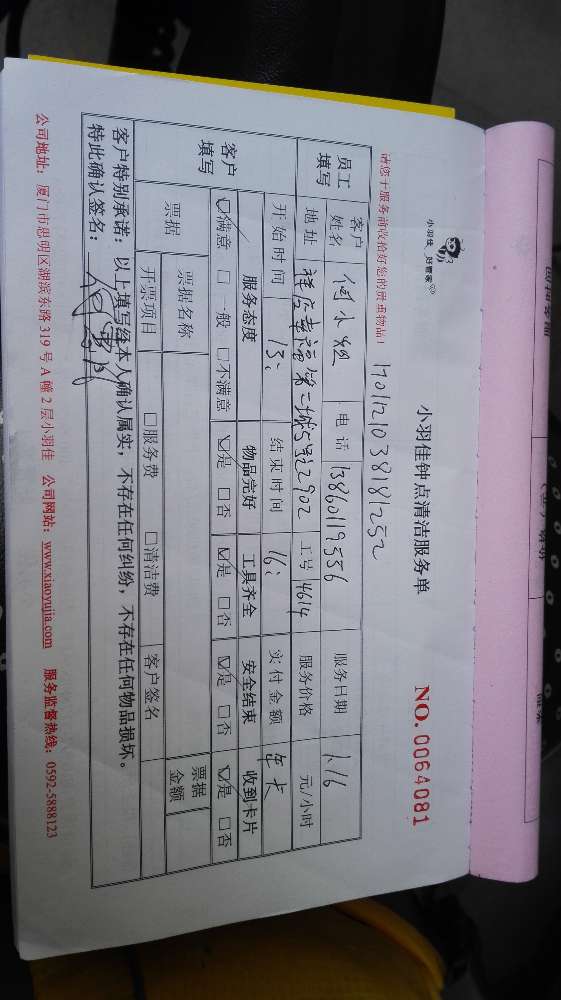 小羽佳 好管家
小羽佳钟点清洁服务单
NO. 0064081
请您于服务前收拾好您的贵重物品!
1701121038181252
员工填写 客户姓名 何小姐 电话 13860119556 服务日期 1.16
地址 5#2902 工号 4614 服务价格 元/小时
开始时间 13: 结束时间 16: 实付金额 年卡
客户填写 服务态度 物品完好 工具齐全 安全结束 收到卡片
☑满意 □一般 □不满意 ☑是 □否 ☑是 □否 ☑是 □否 ☑是 □否
票据 票据名称 票据金额
开票项目 □服务费 □清洁费 客户签名
客户特别承诺：以上填写经本人确认属实，不存在任何纠纷，不存在任何物品损坏。
特此确认签名：
公司地址：厦门市思明区湖滨东路 319 号 A 幢 2 层小羽佳 公司网站：www.xiaoyujia.com 服务监督热线：0592-5888123